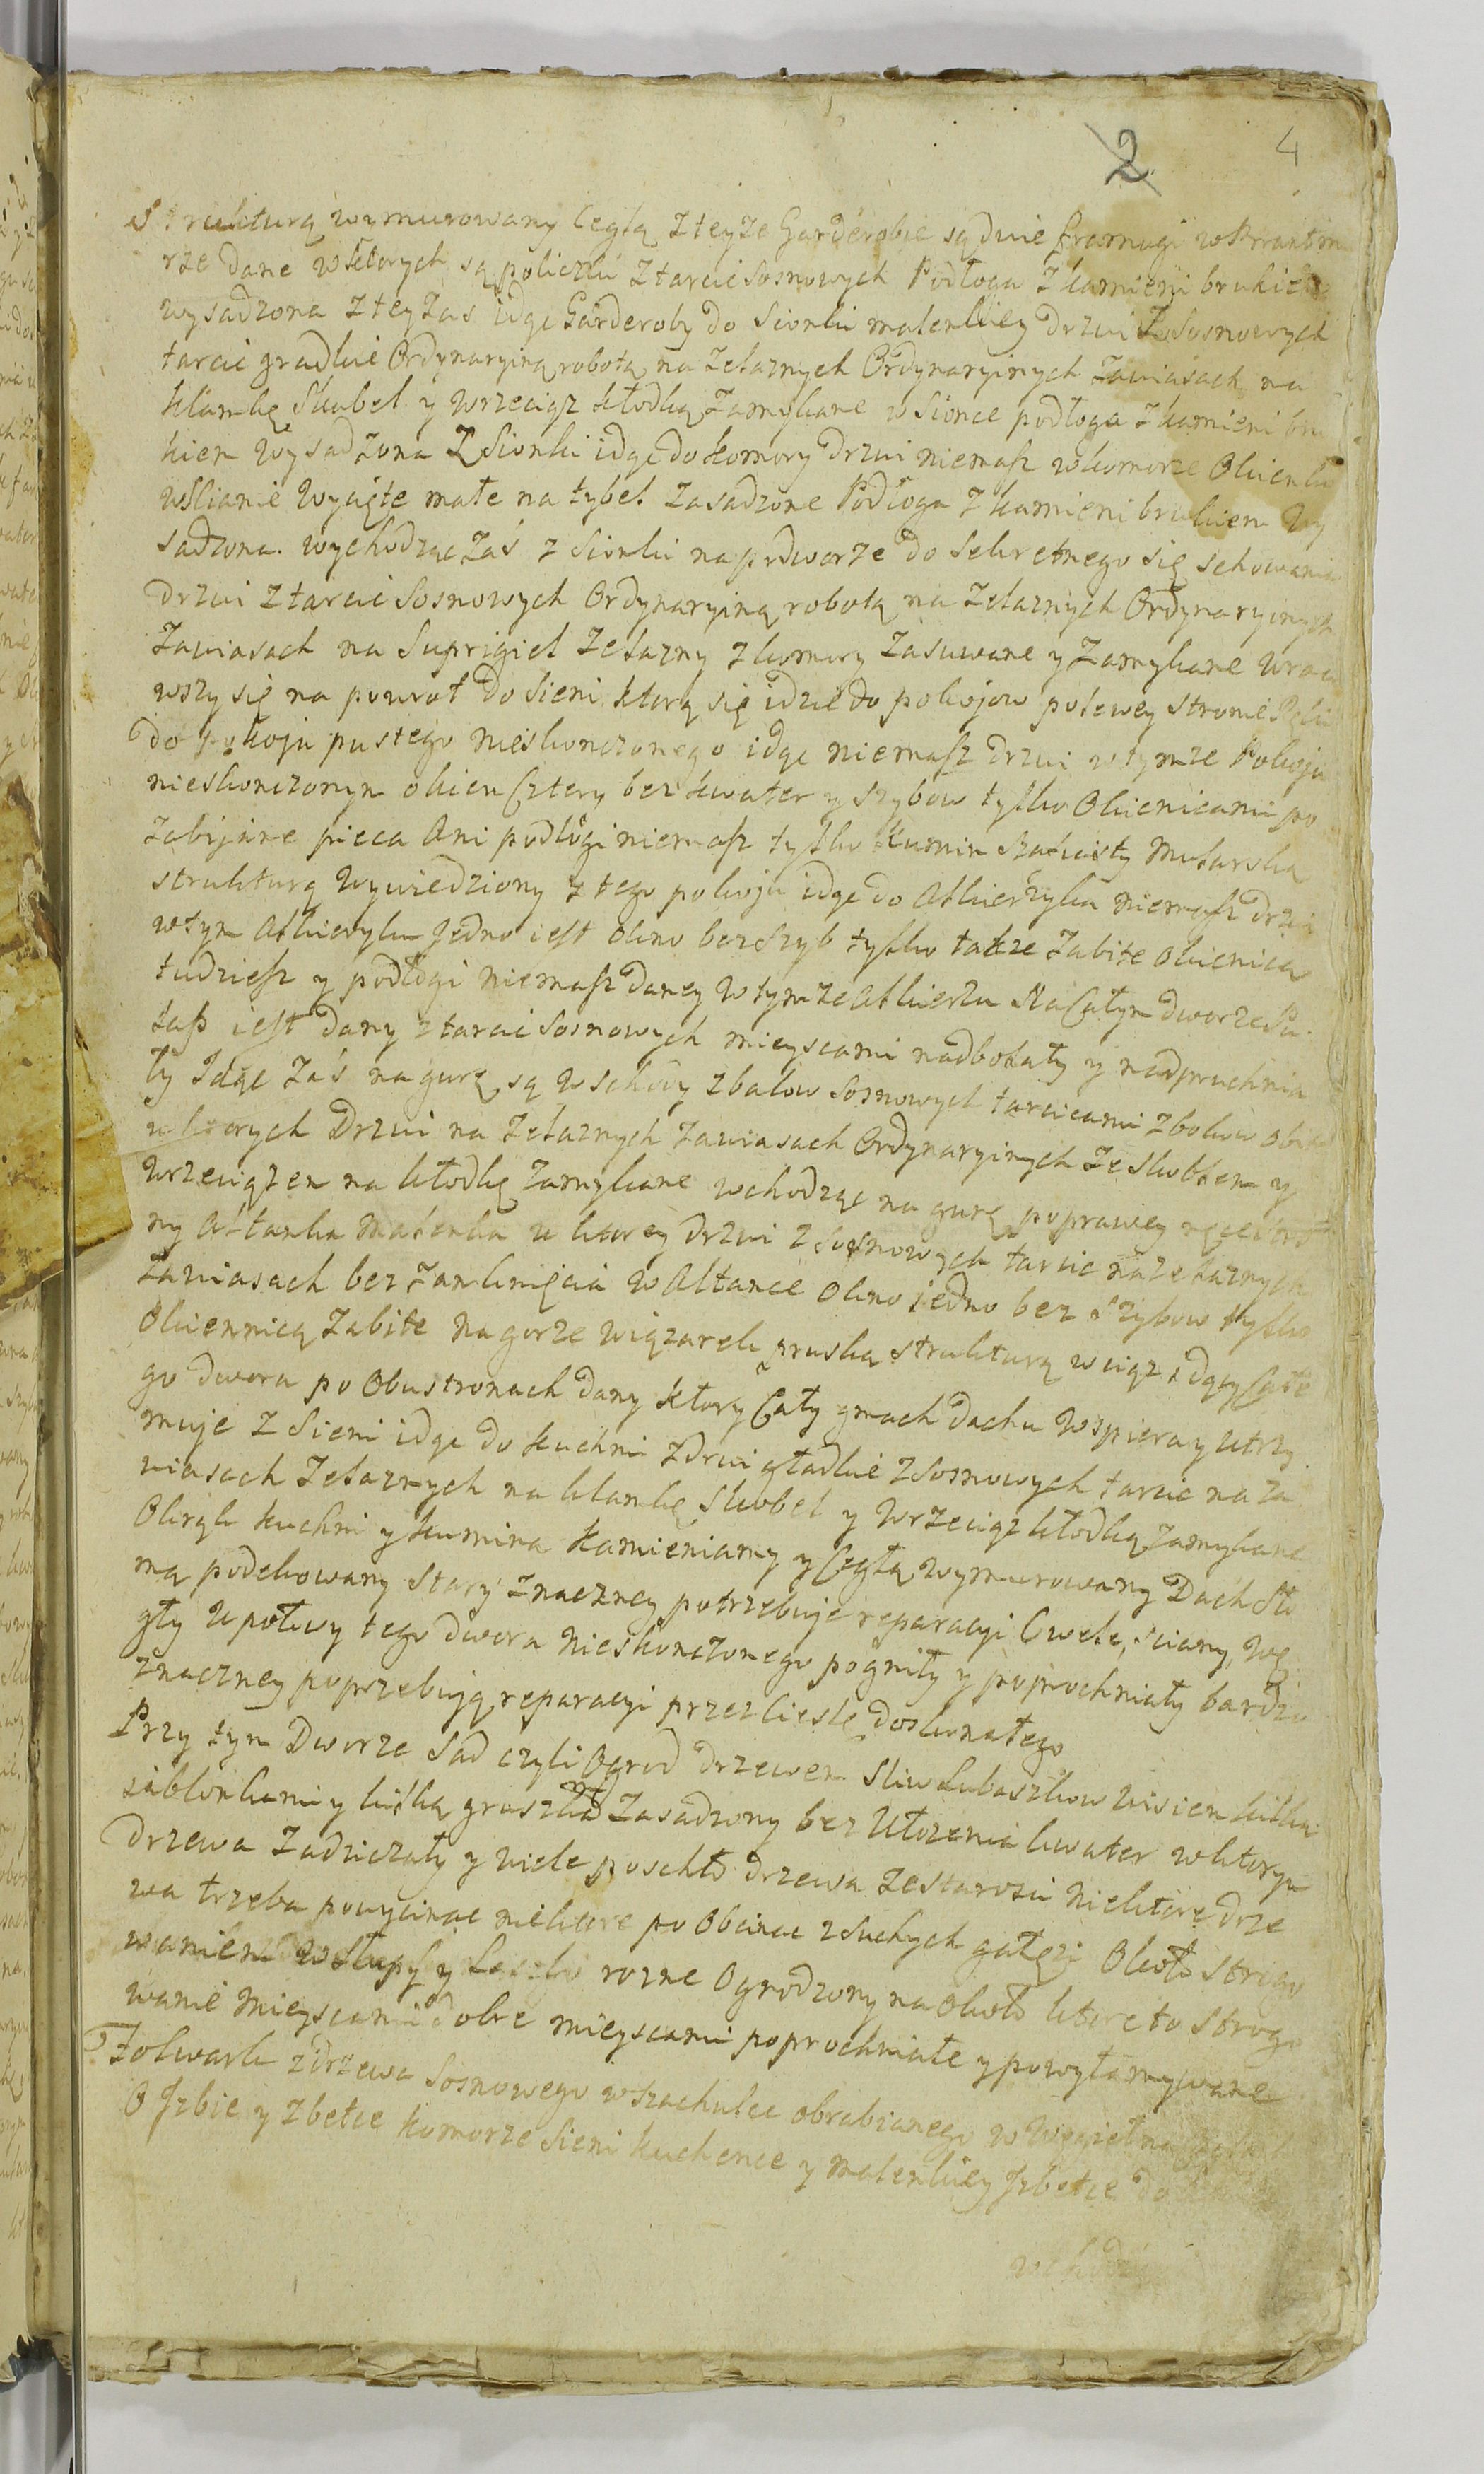 2 4
Strukturą wymurowany Cegłą z teyze Garderobie są dwie framugi w
rze dane w ktorych są policzki z tarcic Sosnowych Podłoga z kamieni brukiem
wysadzona z tey zas idąc Garderoby do Sionki malenkiey drzwi z Sosnowych
tarcic gradkie Ordynaryiną robotą na zelaznych Ordynaryinych zawiasach na
klamkę Skobel y wrzeciąz kłodką zamykane w Sionce podłoga z kamieni bru
kiem wysadzona Z Sionki idąc do komory drzwi niemasz w komorze Okienko
w scianie wycięte małe na tybel zasadzone Podłoga z kamieni brukiem wy
sadzona. wychodząc zaś z Sionki na podworze do sekretnego się schowania
drzwi z tarcic Sosnowych Ordynaryiną robotą na zelaznych Ordynaryinych
zawiasach na Suprigiel zelazny z komory zasuwane y zamykane wroci
wszy się na powrot do Sieni ktorą się idzie do pokojow po lewey stronie
do pokoju pustego nieskonczonego idąc niemasz drzwi w tymze Pokoju
nieskonczonym okien Cztery bez kwater y szybow tylko Okienicami po
zabijane pieca Ani podłogi niemasz tylko kumin Szafiasty Mularską
strukturą wywiedziony z tego pokoju idąc do Alkierzyka niemasz drzwi
w tym Alkierzyku Jedno iest okno bez Szyb tylko takze zabite okienicą
tudziesz y podłogi niemasz daney w tymze Alkierzu Na Całym dworze Pu
łap iest dany z tarcic Sosnowych mieyscami nadbotały y nadpruchnia
ły Idąc zaś na gurę są wschody z balow Sosnowych tarcicami z bokow obite
u ktorych Drzwi na zelaznych zawiasach Ordynaryinych ze Skoblem y
wrzeciązem na kłodkę zamykane wchodząc na gurę po prawey ręce
ny Altanka Malenka u ktorey drzwi z Sosnowych tarcic na zelaznych
zawiasach bez zamknięcia w Altance okno jedno bez Szybow tylko
Okiennicą zabite na gorze wiązarek pruską strukturą wciąz idący Całe
go dwora po Obustronach dany ktory Cały gmach dachu wspiera y utrzy
muje Z Sieni idąc do kuchni zdrwi gładkie z Sosnowych tarcic na za
wiasach zelaznych na klamkę Skobel y wrzeciąz kłodką zamykane
Okrąk kuchni y kumina kamieniamy y Cegłą wymurowany Dach Sło
mą podekowany stary znaczney potrzebuje reparacyi Cwele, sciany, wę
gły u połowy tego dwora nieskonczonego pogniły y poprochniały bardzo
znaczney poprzebują reparacyi przez Ciesle doskonałego
Przy tym Dworze Sad czyli Ogrod drzewem Sliw Lubaszkow wisien kilku
iablonkami y kilką gruszkami zasadzony bez Ułozenia kwater w ktorym
drzewa zadziczały y wiele poschło drzewa ze starosci niektore drze
wa trzeba powycinac niektore po Obcinac z suchych gałęzi Około strogo
waniem w Słupy y rozne Ogrodzony na około ktore to Strogo
wanie mieyscami dobre mieyscami poprochniałe y powyłamywane
Folwark z drzewa Sosnowego w szachulec obrabianego w węgieł
O Jzbie y zbetce komorze Sieni kuchence y malenkiey Jzbetce do